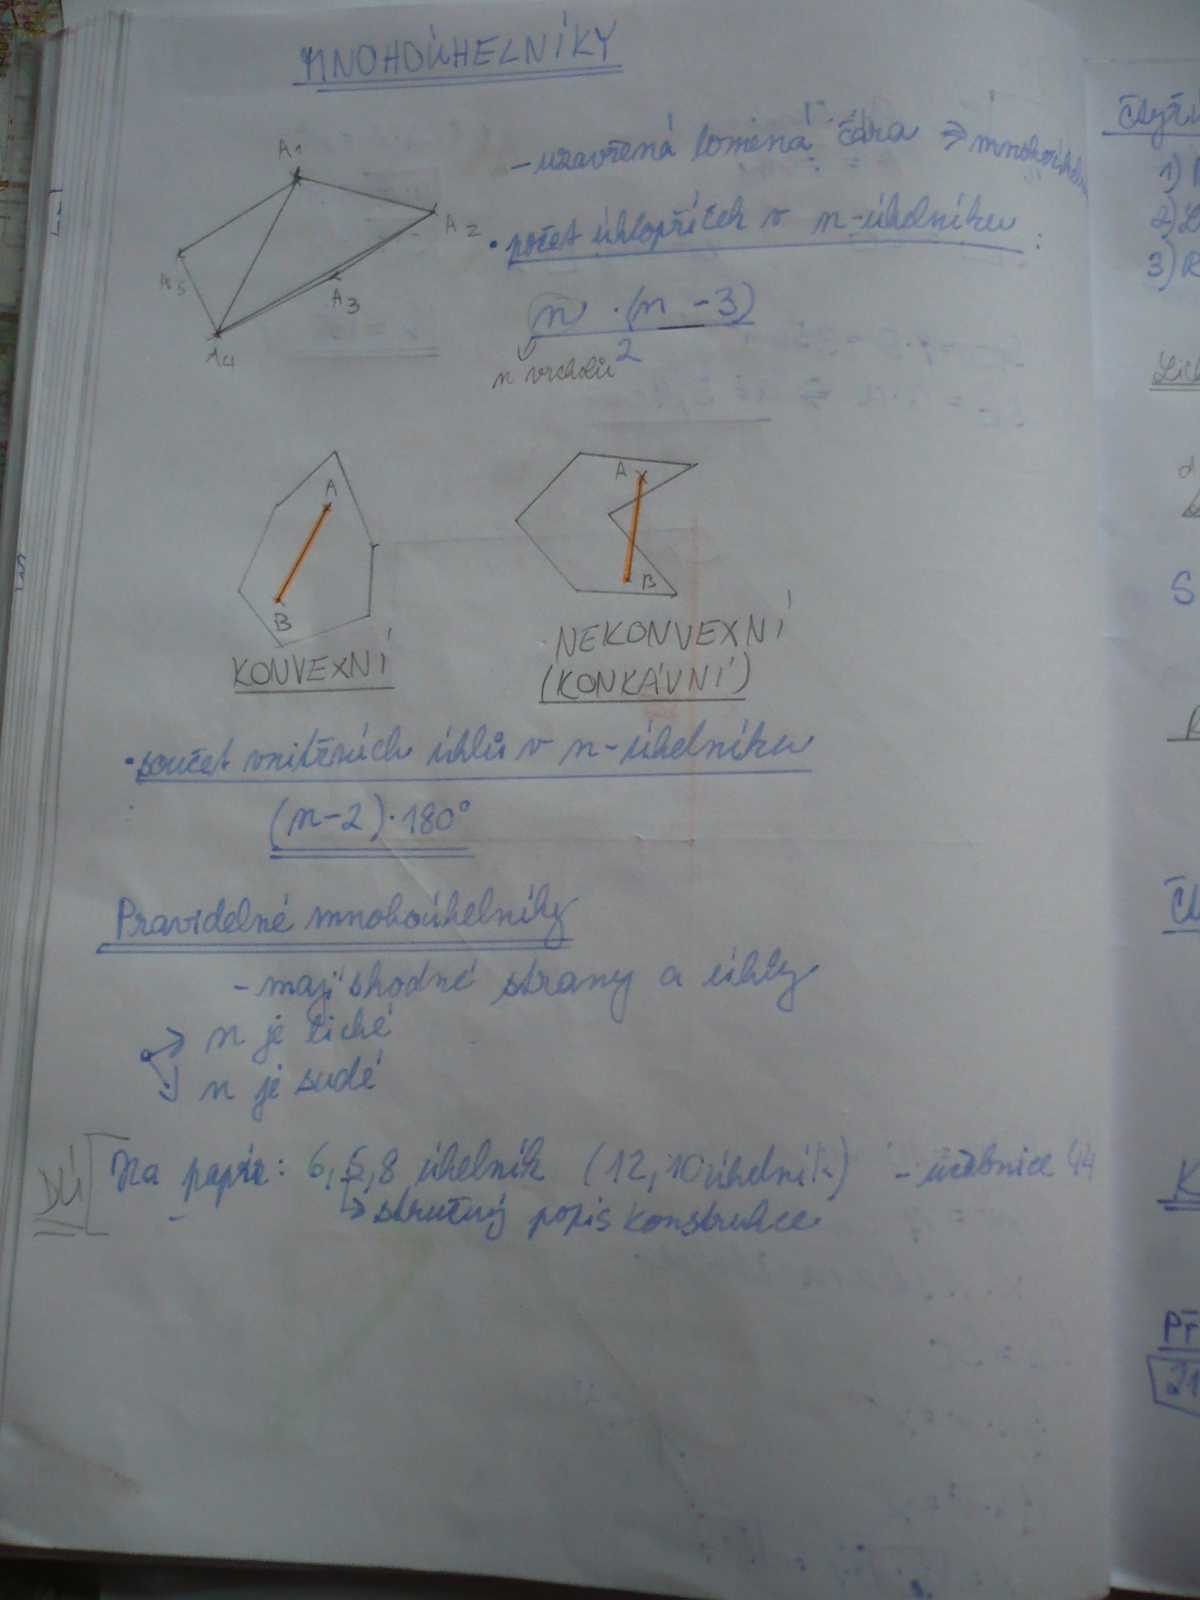 MNOHOÚHELNÍKY
A1
A2
A5
A3
A4
- uzavřená lomená čára ⇒ mnohoúheln
• počet úhlopříček v n-úhelníku :
n · (n - 3)
2
n vrcholů
A
B
KONVEXNÍ
A
B
NEKONVEXNÍ
(KONKÁVNÍ)
• součet vnitřních úhlů v n-úhelníku
(n-2)·180°
Pravidelné mnohoúhelníky
- mají shodné strany a úhly
→ n je liché
→ n je sudé
DÚ
Na papír: 6, 5, 8 úhelník (12, 10 úhelník) - učebnice 44
→ stručný popis konstrukce
1)
2)
3) R
S
21